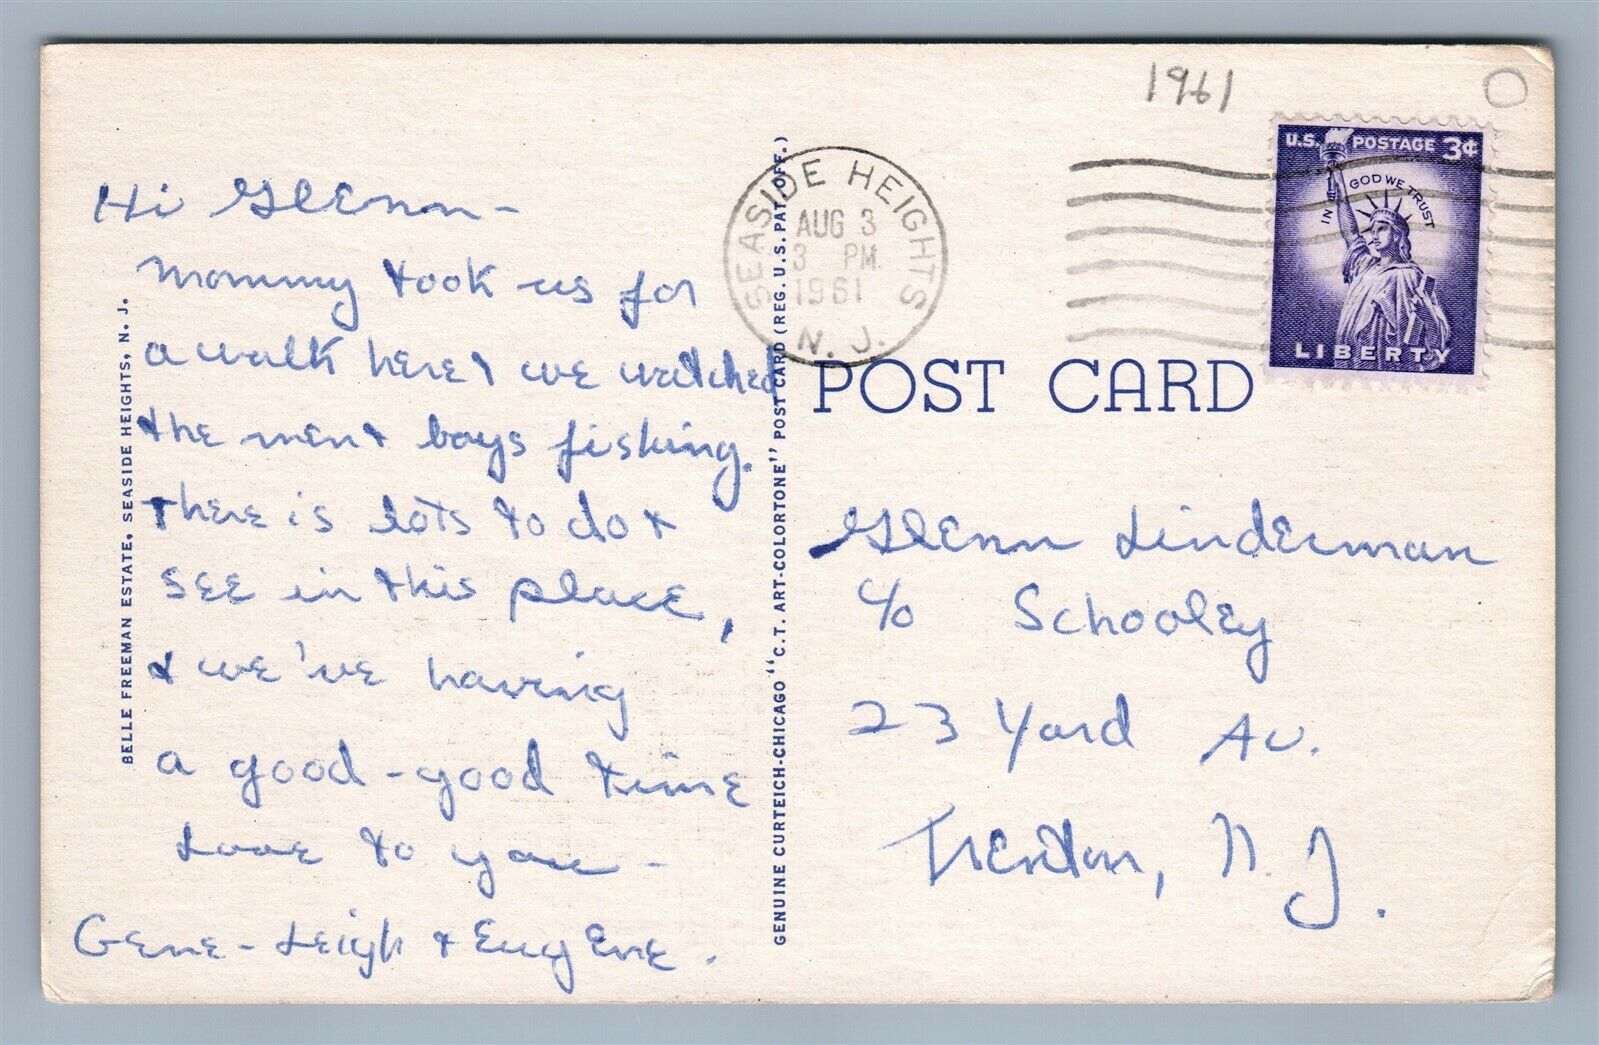 1961
O
U.S. POSTAGE 3¢
IN GOD WE TRUST
LIBERTY
SEASIDE HEIGHTS
AUG 3
3 PM
1961
N. J.
POST CARD
Hi Glenn-
Mommy took us for
a walk here & we watched
the men & boys fishing.
There is lots to do &
see in this place,
& we've having
a good-good time
Love to you -
Gene-Leigh & Eugene.
BELLE FREEMAN ESTATE, SEASIDE HEIGHTS, N. J.
GENUINE CURTEICH-CHICAGO "C.T. ART-COLORTONE" POST CARD (REG. U.S. PAT. OFF.)
Glenn Linderman
c/o Schooley
23 Yard Av.
Trenton, N. J.